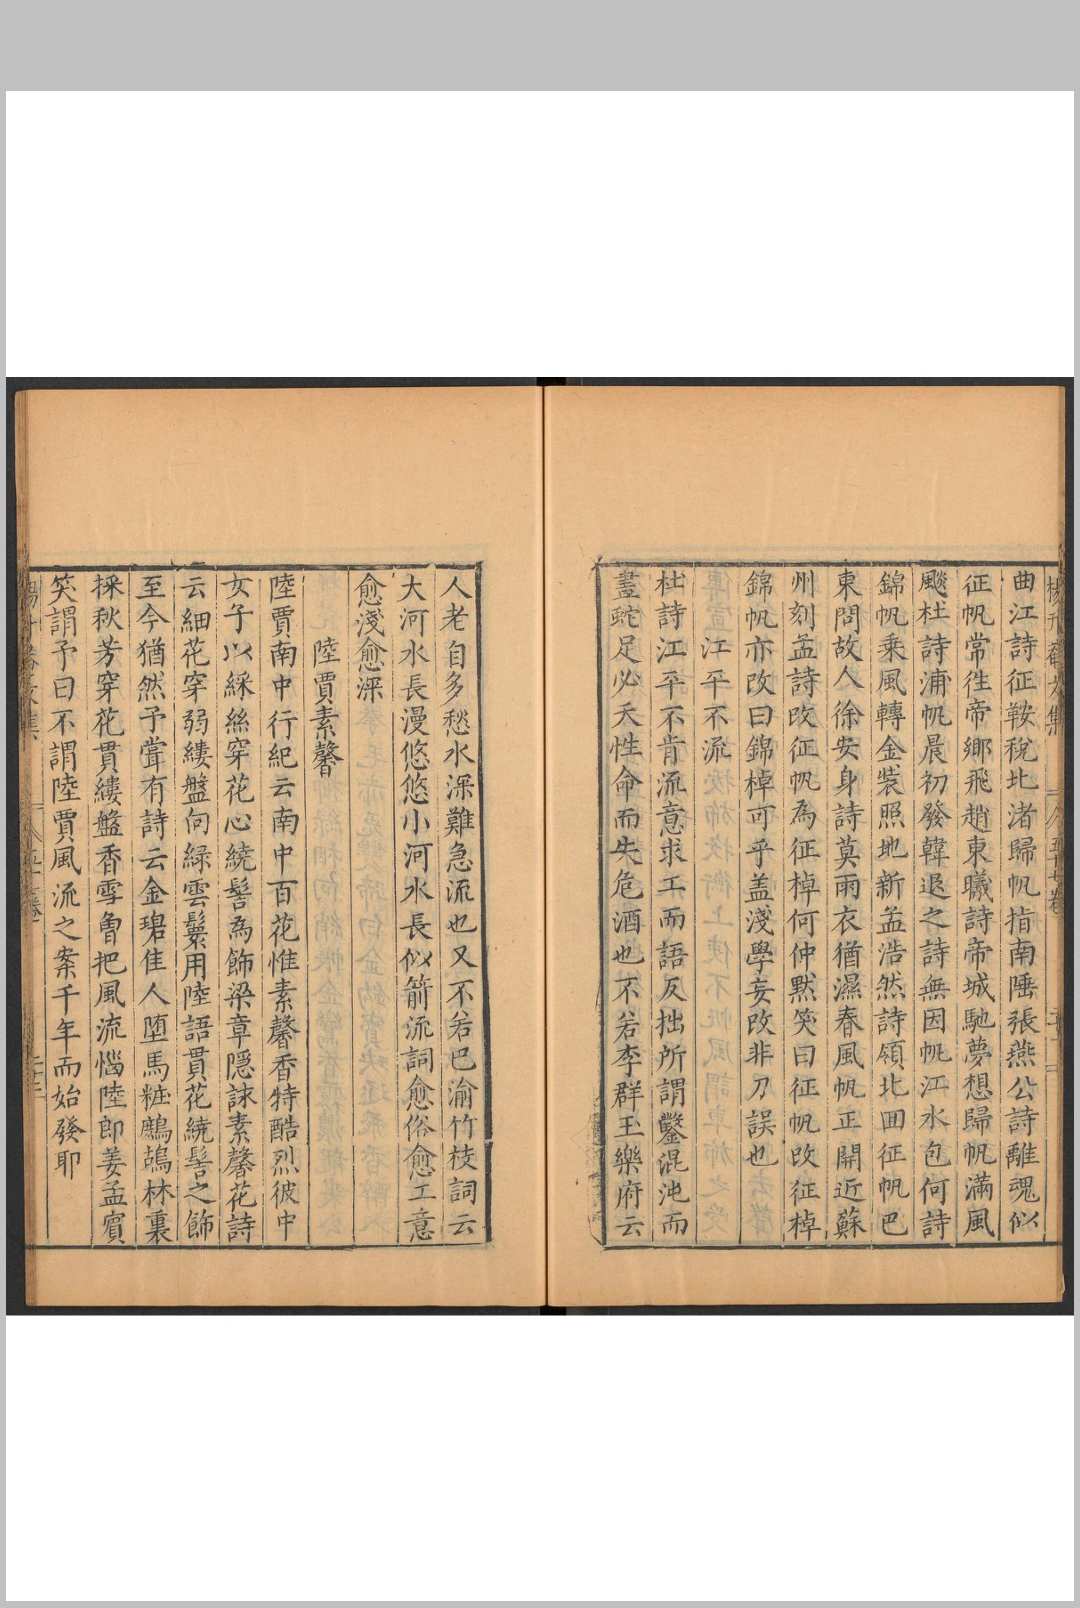 曲江詩征鞍稅北渚歸帆指南陲張燕公詩離魂似
征帆常徃帝鄉飛趙東曦詩帝城馳夢想歸帆滿風
飈杜詩浦帆晨初發韓退之詩無因帆江水包何詩
錦帆乗風轉金裝照地新孟浩然詩嶺北囬征帆巴
東問故人徐安身詩莫雨衣猶濕春風帆正開近蘇
州刻孟詩改征帆為征棹何仲默笑曰征帆改征棹
錦帆亦改曰錦棹可乎盖淺學妄改非刀誤也
江平不流
杜詩江平不肯流意求工而語反拙所謂鑿混沌而
畫蛇足必夭性命而失危酒也不若李群玉樂府云
人老自多愁水深難急流也又不若巴渝竹枝詞云
大河水長漫悠悠小河水長似箭流詞愈俗愈工意
愈淺愈深
陸賈素馨
陸賈南中行紀云南中百花惟素馨香特酷烈彼中
女子以綵絲穿花心繞髻為飾梁章隠詠素馨花詩
云細花穿弱縷盤向綠雲鬟用陸語貫花繞髻之飾
至今猶然予甞有詩云金碧佳人堕馬粧鷓鴣林裏
採秋芳穿花貫縷盤香雪曾把風流惱陸郎姜孟賓
笑謂予曰不謂陸賈風流之案千年而始發耶